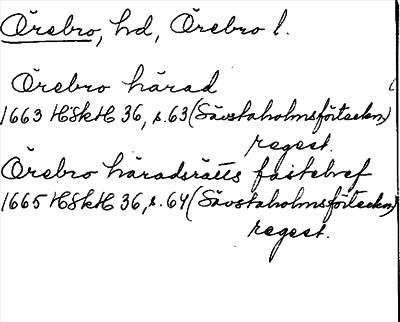 Örebro, hd, Örebro l.
Örebro härad
1663 HSkH 36, s. 63 (Sävstaholmsförteckn)
regest.
Örebro häradsrätts fastebref
1665 HSkH 36, s. 64 (Sävstaholmsförteckn)
regest.